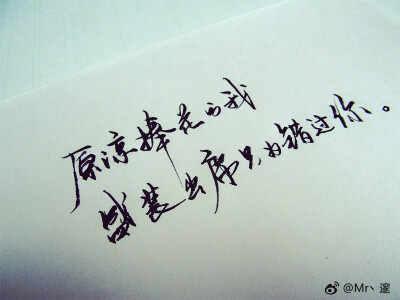 原谅捧花的我
盛装出席只为错过你。
@Mr丶邃